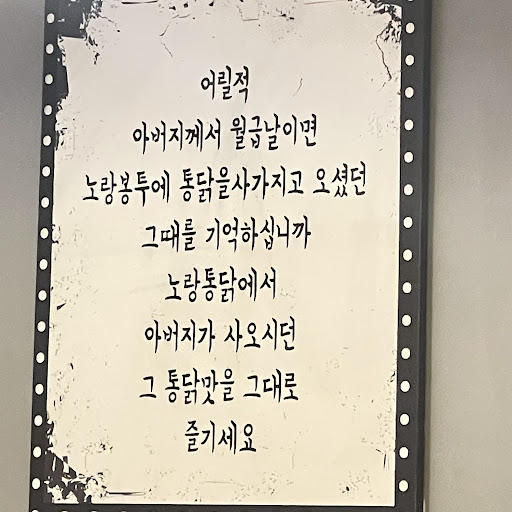 어릴적
아버지께서 월급날이면
노랑봉투에 통닭을사가지고 오셨던
그때를 기억하십니까
노랑통닭에서
아버지가 사오시던
그 통닭맛을 그대로
즐기세요